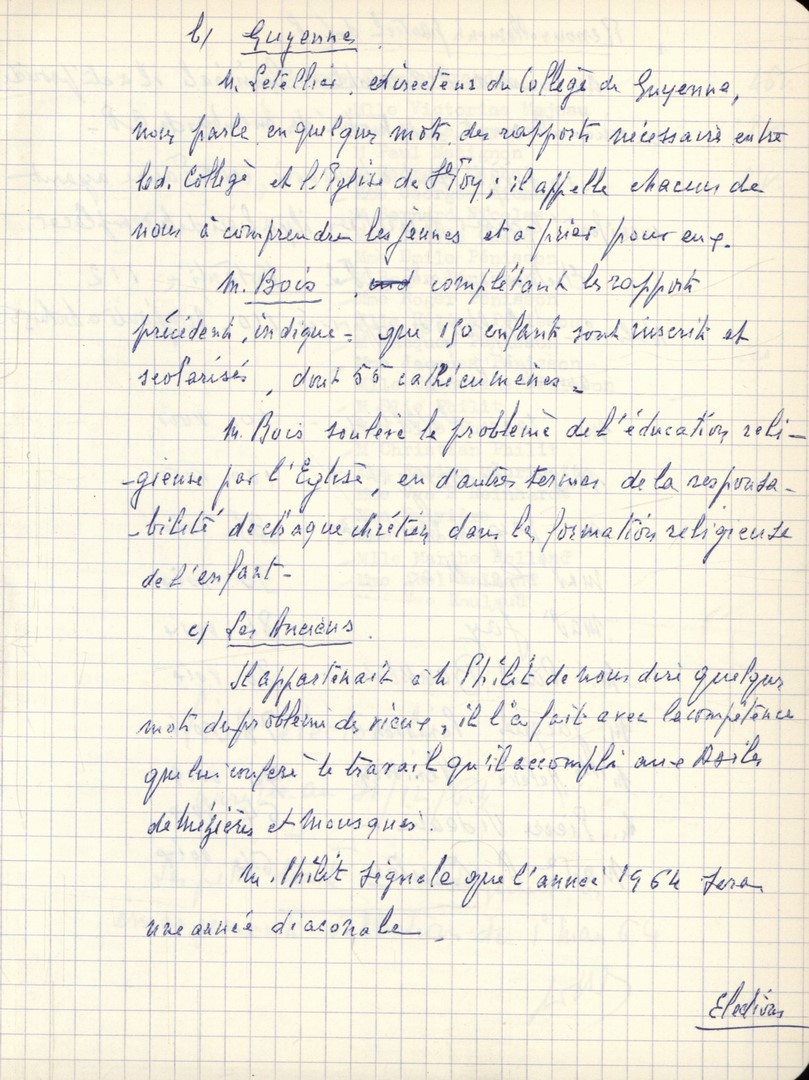 b/ Guyenne.
M. Letellier, directeur du Collège de Guyenne,
nous parle en quelques mots des rapports nécessaires entre
led. Collège et l'Eglise de Ste Foy ; il appelle chacun de
nous à comprendre les jeunes et à prier pour eux.
M. Bois, complétant les rapports
précédents, indique - que 150 enfants sont inscrits et
scolarisés, dont 55 cathécumènes.
M. Bois soulève le problème de l'éducation reli-
-gieuse par l'Eglise, en d'autres termes de la responsa-
-bilité de chaque chrétien dans la formation religieuse
de l'enfant -
c/ Les Anciens.
Il appartenait à M. Philit de nous dire quelques
mots du problème des vieux, il l'a fait avec la compétence
que lui confère le travail qu'il accompli aux Asiles
de Mézières et Mousques.
M. Philit signale que l'année 1964 sera
une année diaconale.
Elections